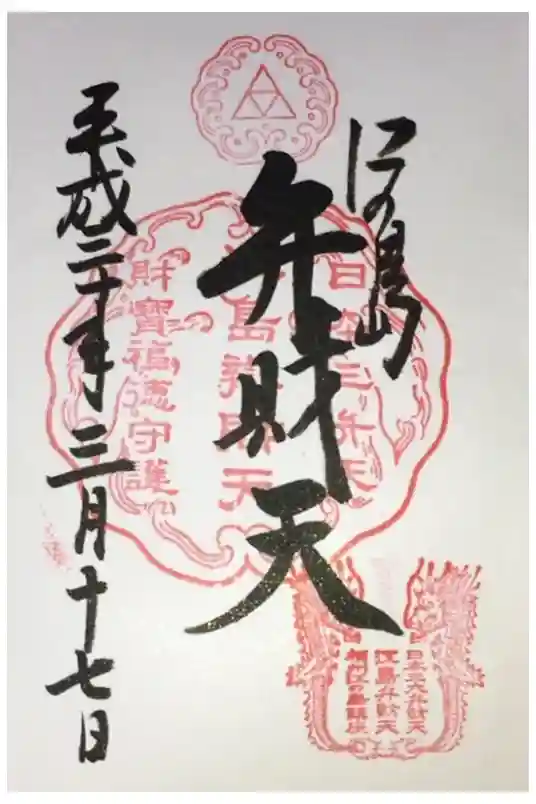 江の島
弁財天
平成二十年三月十七日
日本三弁天
江島辨財天
財寶福徳守護
日本三大弁財天
江島弁財天